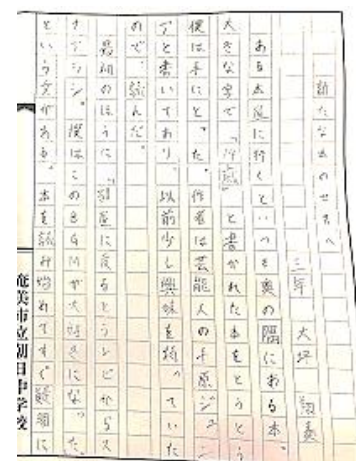 新たな本のせかへ
三年 大坪 翔
ある本屋に行くといつも奥の隅にある本。
大きな字で と書かれた本をとうとう
僕は手にとった。作者は芸能人の千原ジュニ
アと書いてあり、以前少し興味を持っていた
ので、読んだ。
最初のほうに、「部屋に戻るとうしどし
ナアシン。僕はこのBGMが大好きになった。」
という文がある。本を読み始めてすぐ疑問に
奄美市立朝日中学校